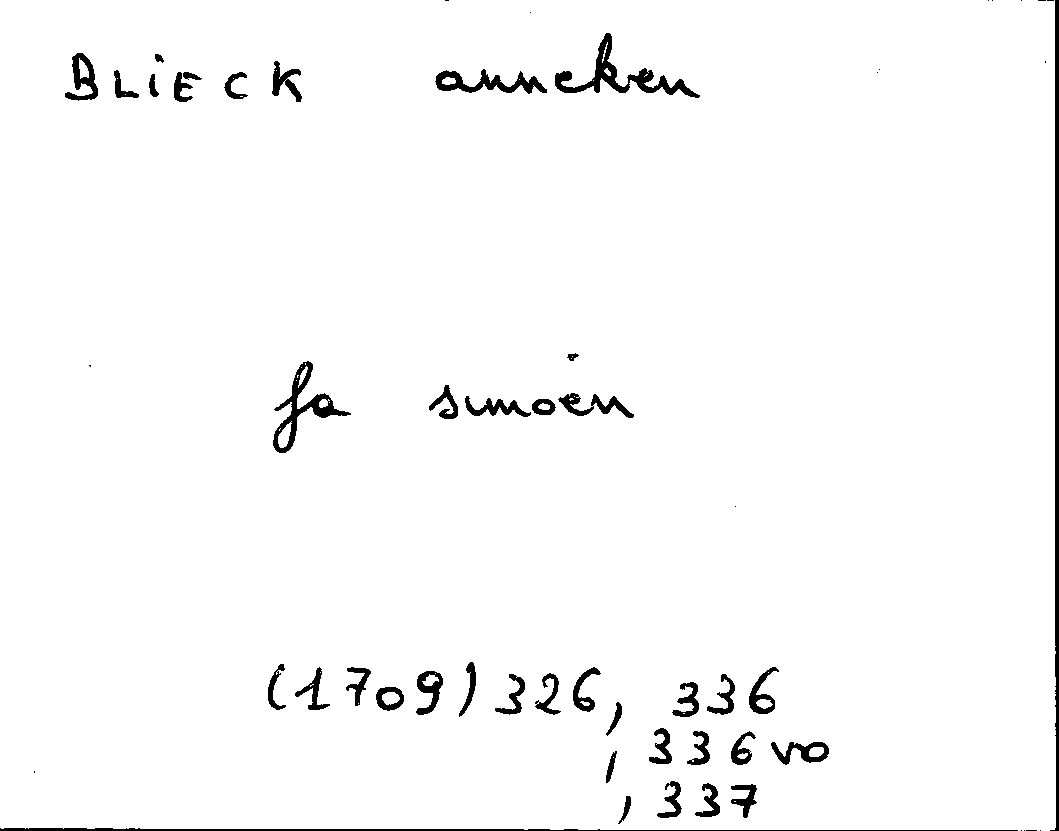 BLiECK anneken
fa simoen
(1709) 326, 336
, 336 vo
, 337